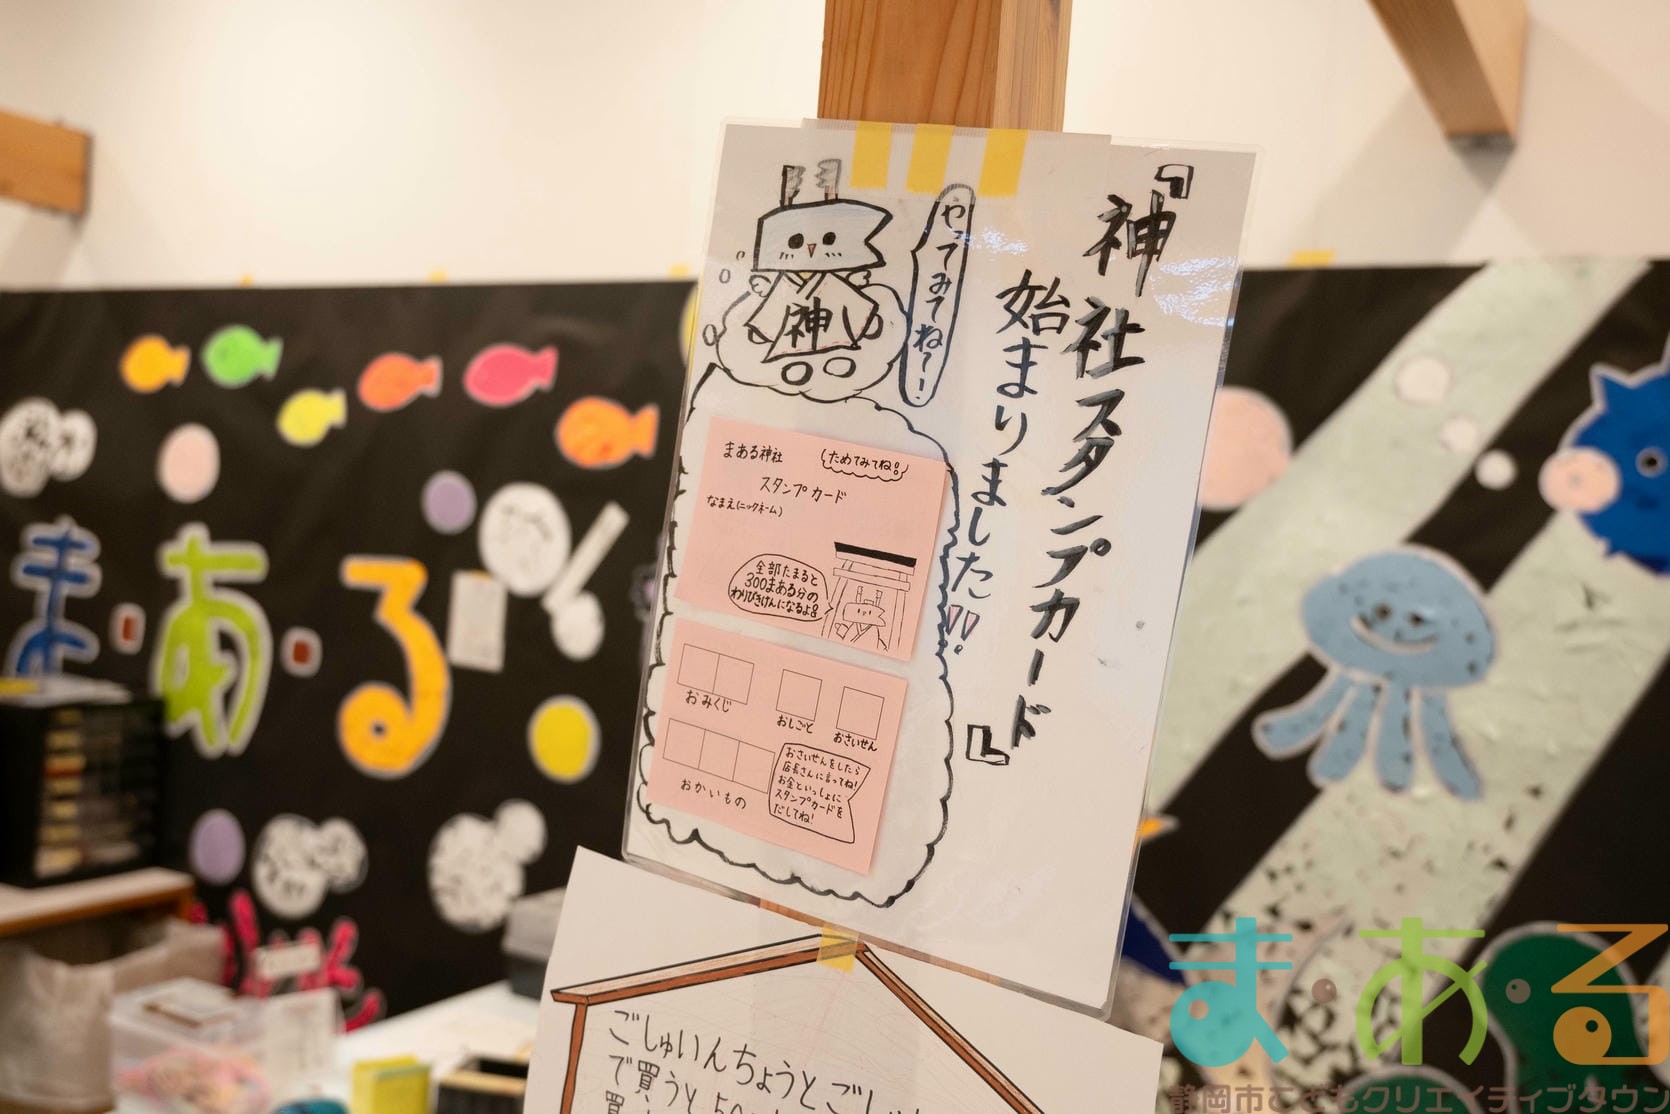 『神社スタンプカード
始まりました!!』
やってみてね〜!
神
まある神社
ためてみてね!
スタンプカード
なまえ(ニックネーム)
全部たまると
300まある分の
わりびきけんになるよ!
おみくじ
おしごと
おさいせん
おかいもの
おさいせんをしたら
店長さんに言ってね!
お金といっしょに
スタンプカードを
だしてね!
ごしゅいんちょうとごしゅ
で買うと
ま・ある
ま・ある
静岡市こどもクリエイティブタウン